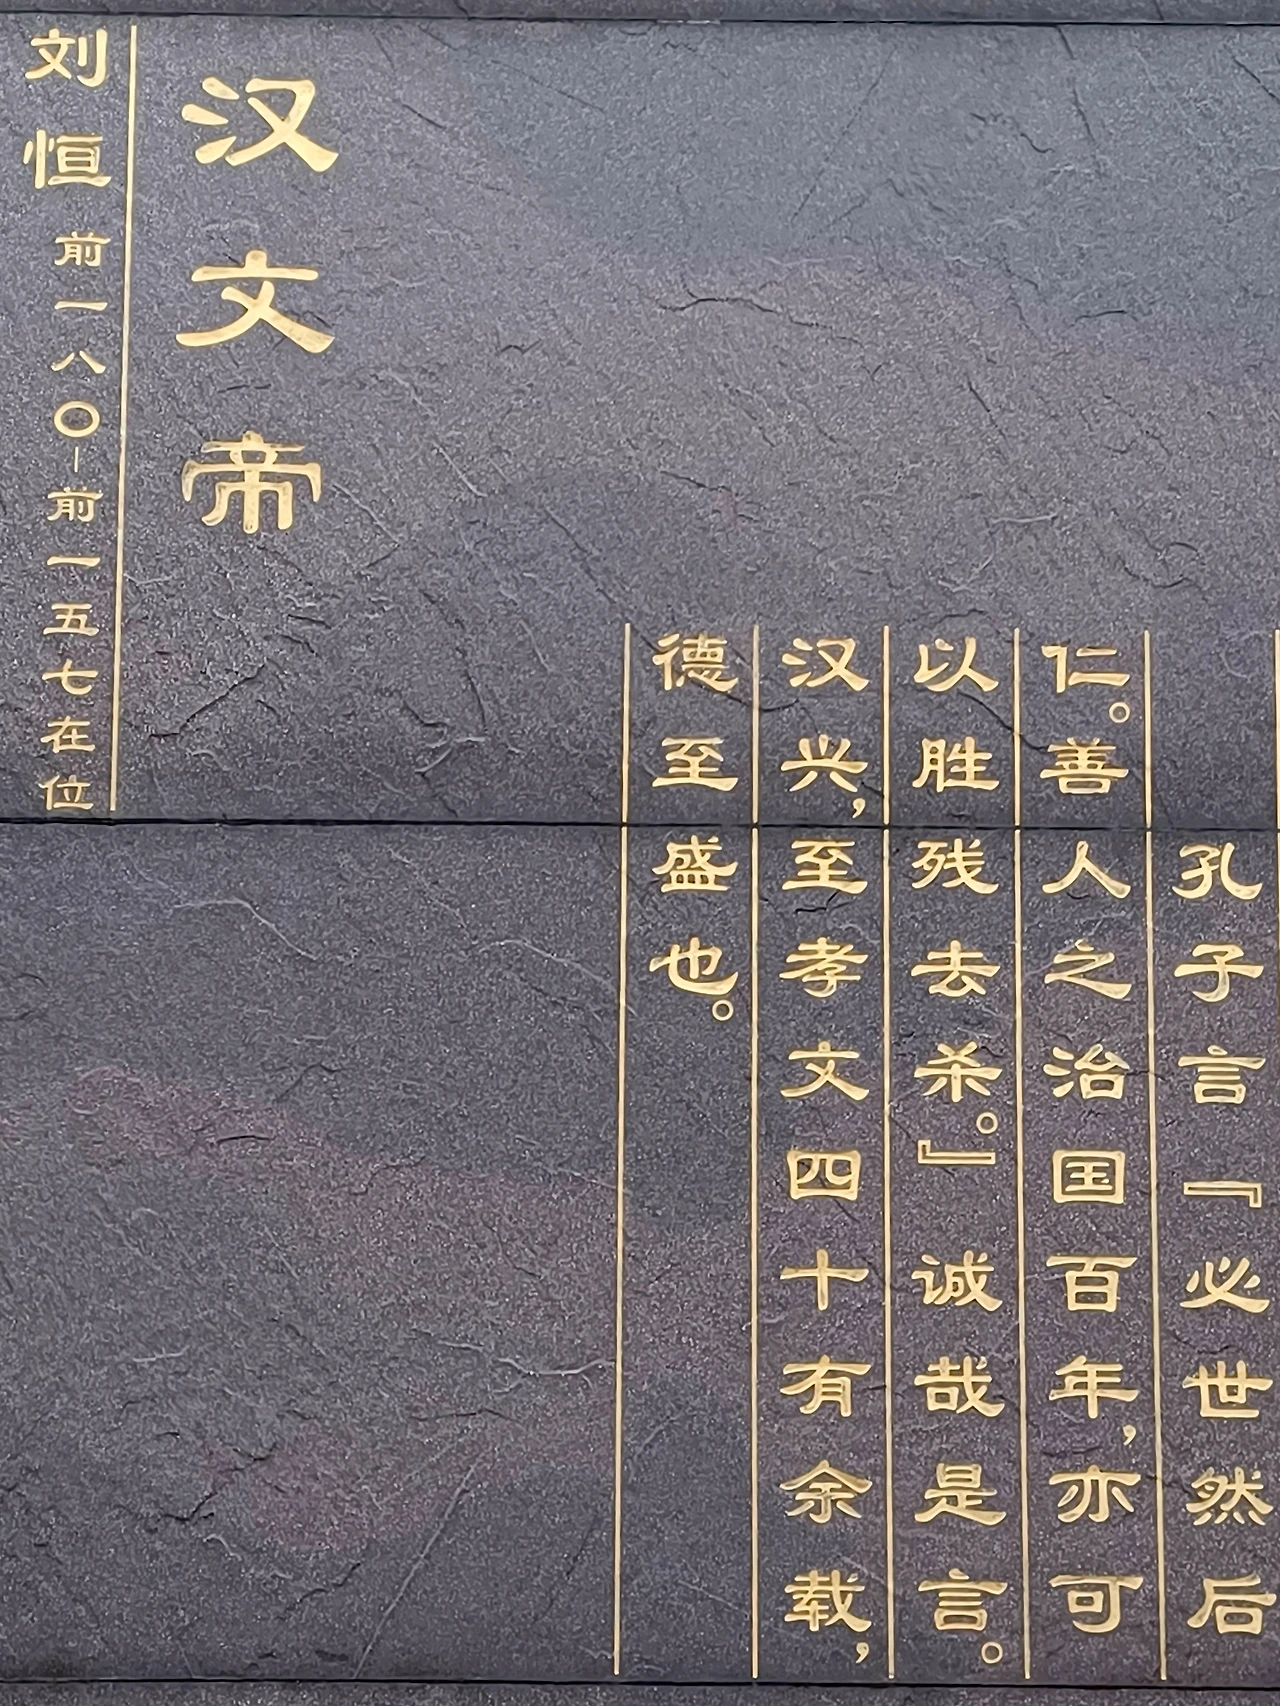 孔子言『必世然后
仁。善人之治国百年，亦可
以胜残去杀。』诚哉是言。
汉兴，至孝文四十有余载，
德至盛也。
汉文帝
刘恒前一八〇-前一五七在位